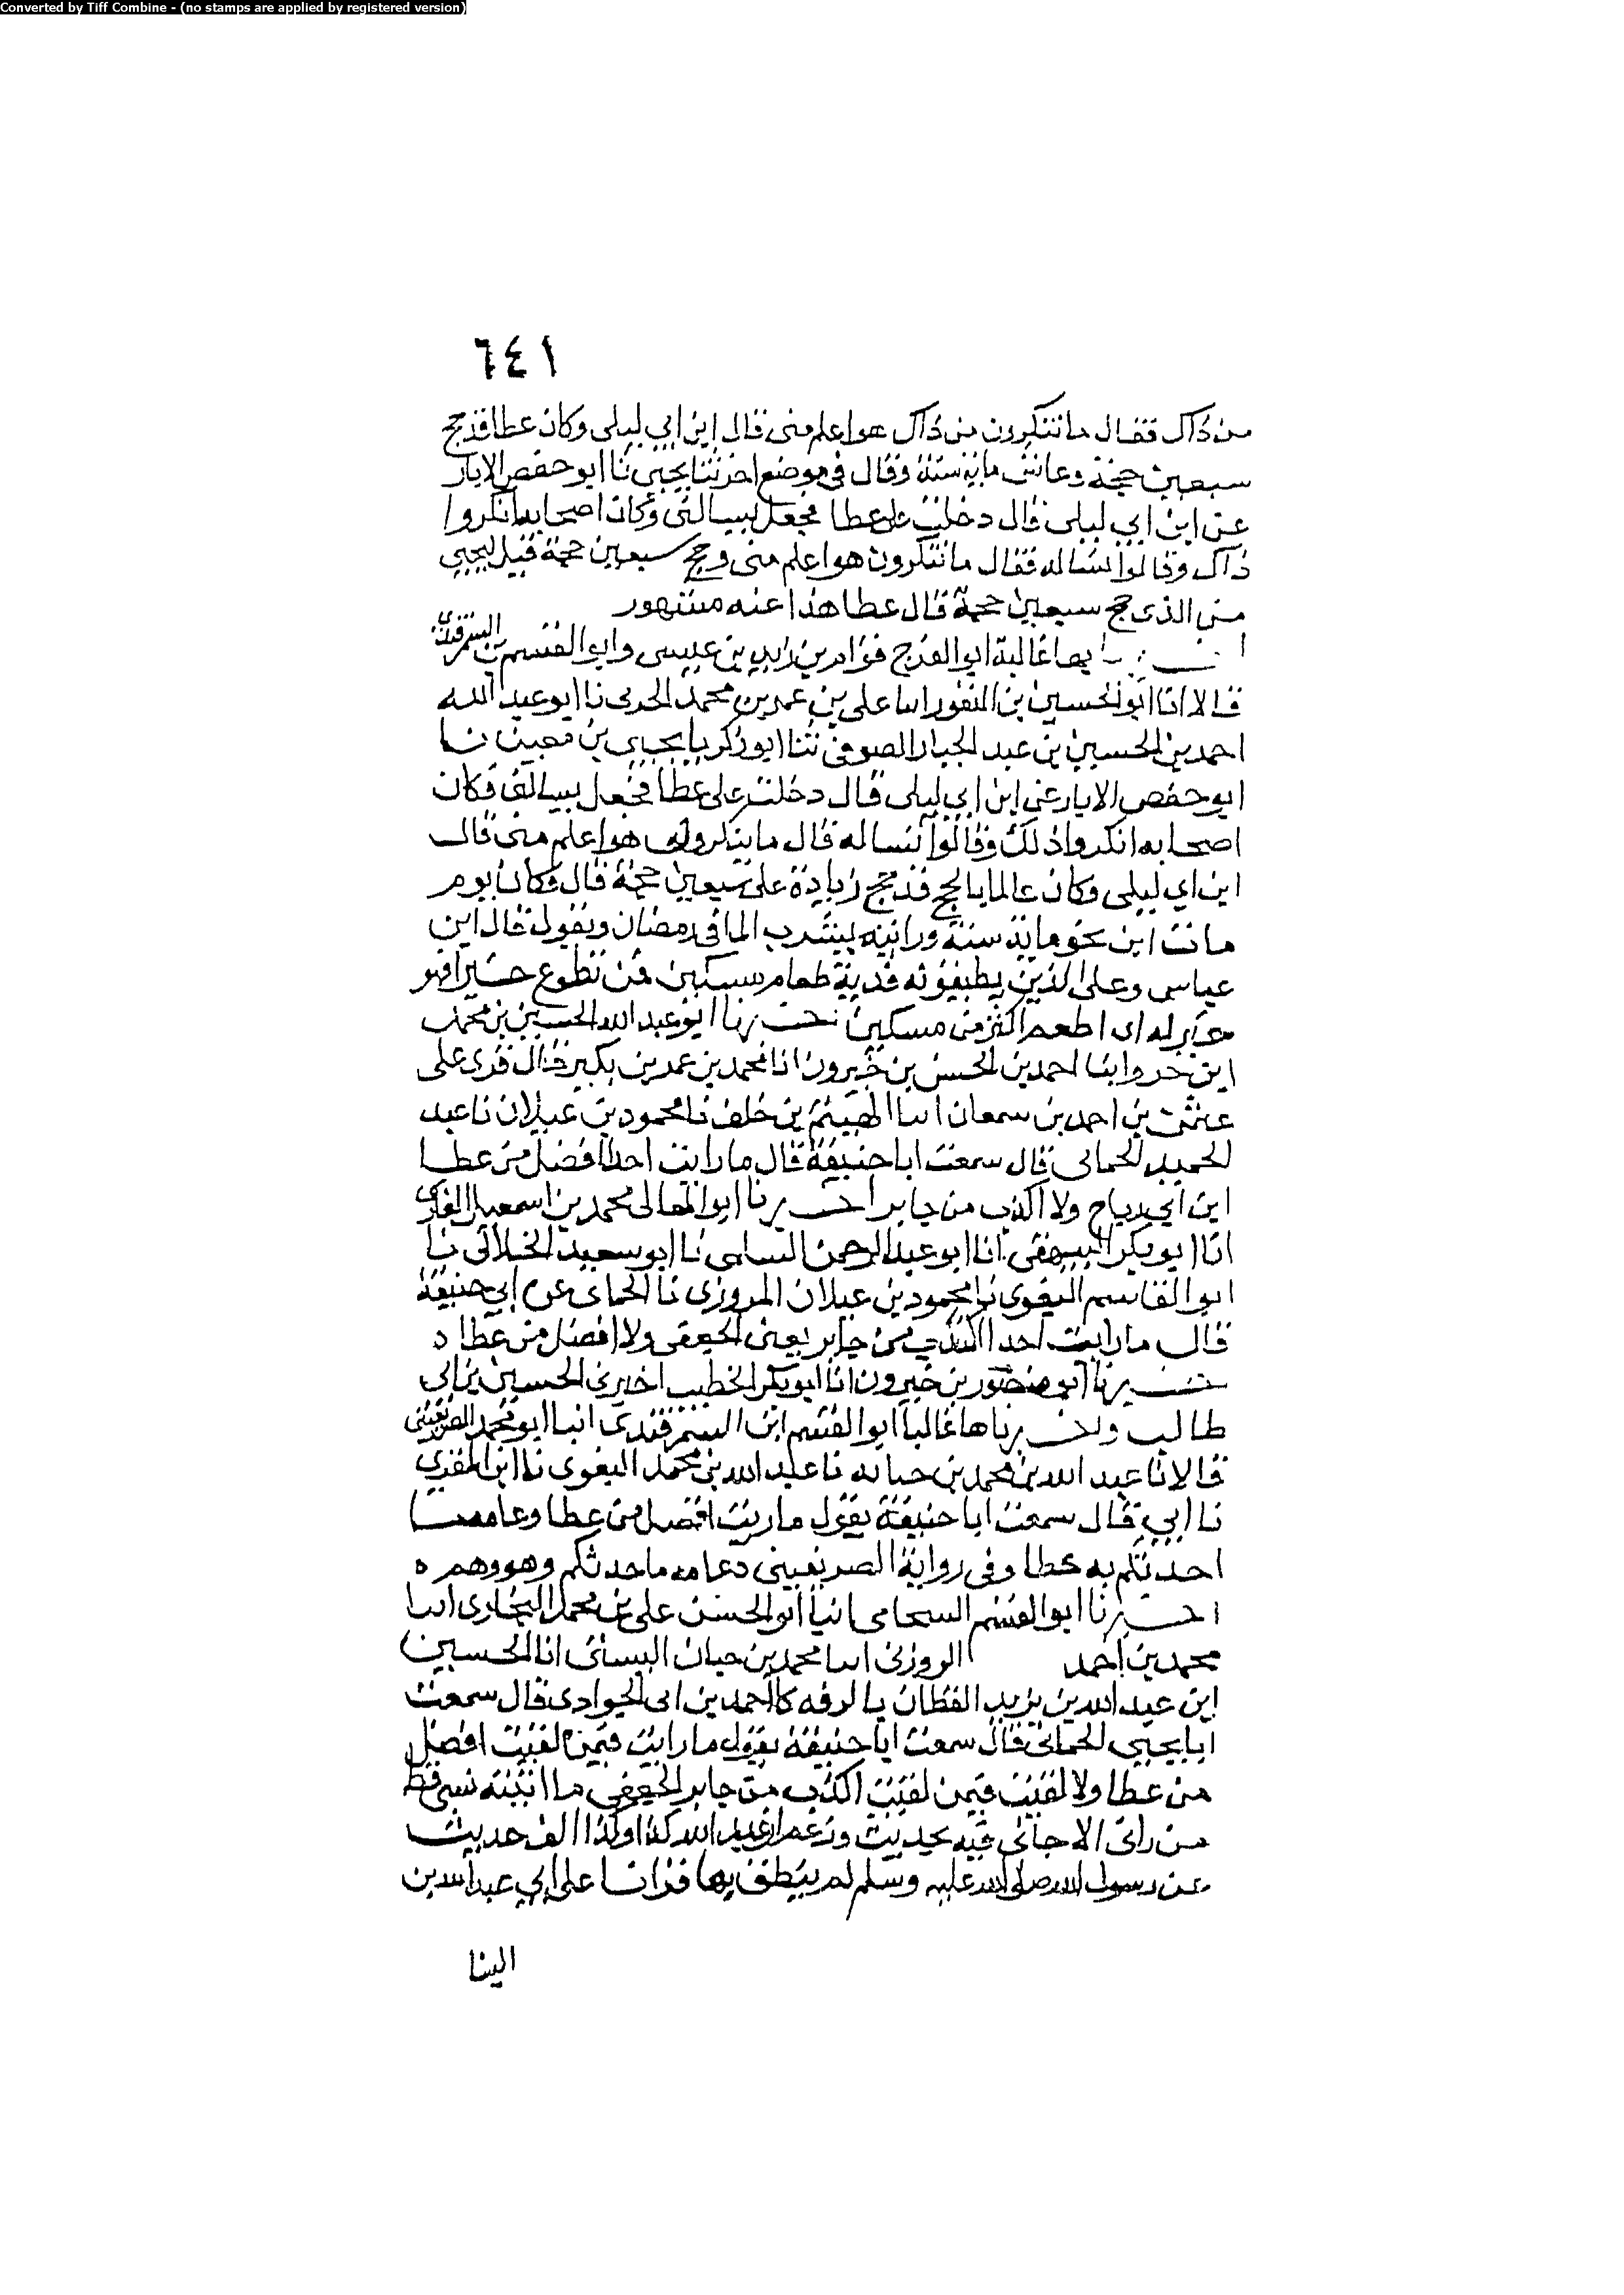 Converted by Tiff Combine - (no stamps are applied by registered version)
٦٤١
من ذاك فقال ما تنكرون من ذاك هو اعلم مني قال ابن ابي ليلى وكان عطا قد حج
سبعين حجة وعاش ماية سنة وقال في موضع اخر ثنا يحيى نا ابو حفص الابار
عن ابن ابي ليلى قال دخلت على عطا فجعل يسالني وكان اصحابه انكروا
ذاك وقالوا تساله فقال ما تنكرون هو اعلم مني وحج سبعين حجة قيل ليحيى
من الذي حج سبعين حجة قال عطا هذا عنه مشهور
بها غالية ابو الفرج قوام بن زيد بن عيسى وابو القسم بن السمرقندي
قالا انا ابو الحسين بن النقور انبا علي بن عمر بن محمد الحربي نا ابو عبد الله
احمد بن الحسين بن عبد الجبار الصوفي ثنا ابو زكريا يحيى بن معين نا
ابو حفص الابار عن ابن ابي ليلى قال دخلت على عطا فجعل يسالني فكان
اصحابه انكروا ذلك وقالوا تساله قال ما تنكرون هو اعلم مني قال
ابن ابي ليلى وكان عالما بالحج قد حج زيادة على سبعين حجة قال وكان يوم
مات ابن نحو ماية سنة ورايته يشرب الما في رمضان ويقول قال ابن
عباس وعلى الذين يطيقونه فدية طعام مسكين فمن تطوع خيرا فهو
خير له اي اطعم اكثر من مسكين اخبرنا ابو عبد الله الحسين بن محمد
ابن خسرو انبا احمد بن الحسن بن خيرون انا محمد بن عمر بن بكير قال قرى على
عثمن بن احمد بن سمعان انبا الهيثم بن خلف نا محمود بن غيلان نا عبد
الحميد الحماني قال سمعت ابا حنيفة قال ما رايت احدا افضل من عطا
ابن ابي رباح ولا اكذب من جابر اخبرنا ابو المعالي محمد بن اسمعيل الفارسي
انا ابو بكر البيهقي انا ابو عبد الرحمن السلمي نا ابو سعيد الخلالي نا
ابو القاسم البغوي نا محمود بن غيلان المروزي نا الحماني عن ابي حنيفة
قال ما رايت احدا اكذب من جابر يعني الجعفي ولا افضل من عطا ه
اخبرنا ابو منصور بن خيرون انا ابو بكر الخطيب اخبرني الحسين بن ابي
طالب واخبرناها غالبا ابو القسم ابن السمرقندي انبا ابو محمد الصريفيني
قالا انا عبد الله بن محمد بن حبابه نا عبد الله بن محمد البغوي نا ابن المقري
نا ابي قال سمعت ابا حنيفة يقول ما رايت افضل من عطا وعامة ما
احدثكم به عطا وفي رواية الصريفيني وعامة ما حدثكم وهو وهم ه
اخبرنا ابو القسم الشحامي انبا ابو الحسن علي بن محمد البخاري انبا
محمد بن احمد الروزني انبا محمد بن حبان البستي انا الحسين
ابن عبد الله بن يزيد القطان بالرقة نا احمد بن ابي الحواري قال سمعت
ابا يحيى الحماني قال سمعت ابا حنيفة يقول ما رايت فيمن لقيت افضل
من عطا ولا لقيت فيمن لقيت اكذب من جابر الجعفي ما اتيته بشي قط
من رائي الا جاني فيه بحديث وزعم ان عنده كذا وكذا الف حديث
عن رسول الله صلى الله عليه وسلم لم ينطق بها قرانا على ابي عبد الله بن
البنا